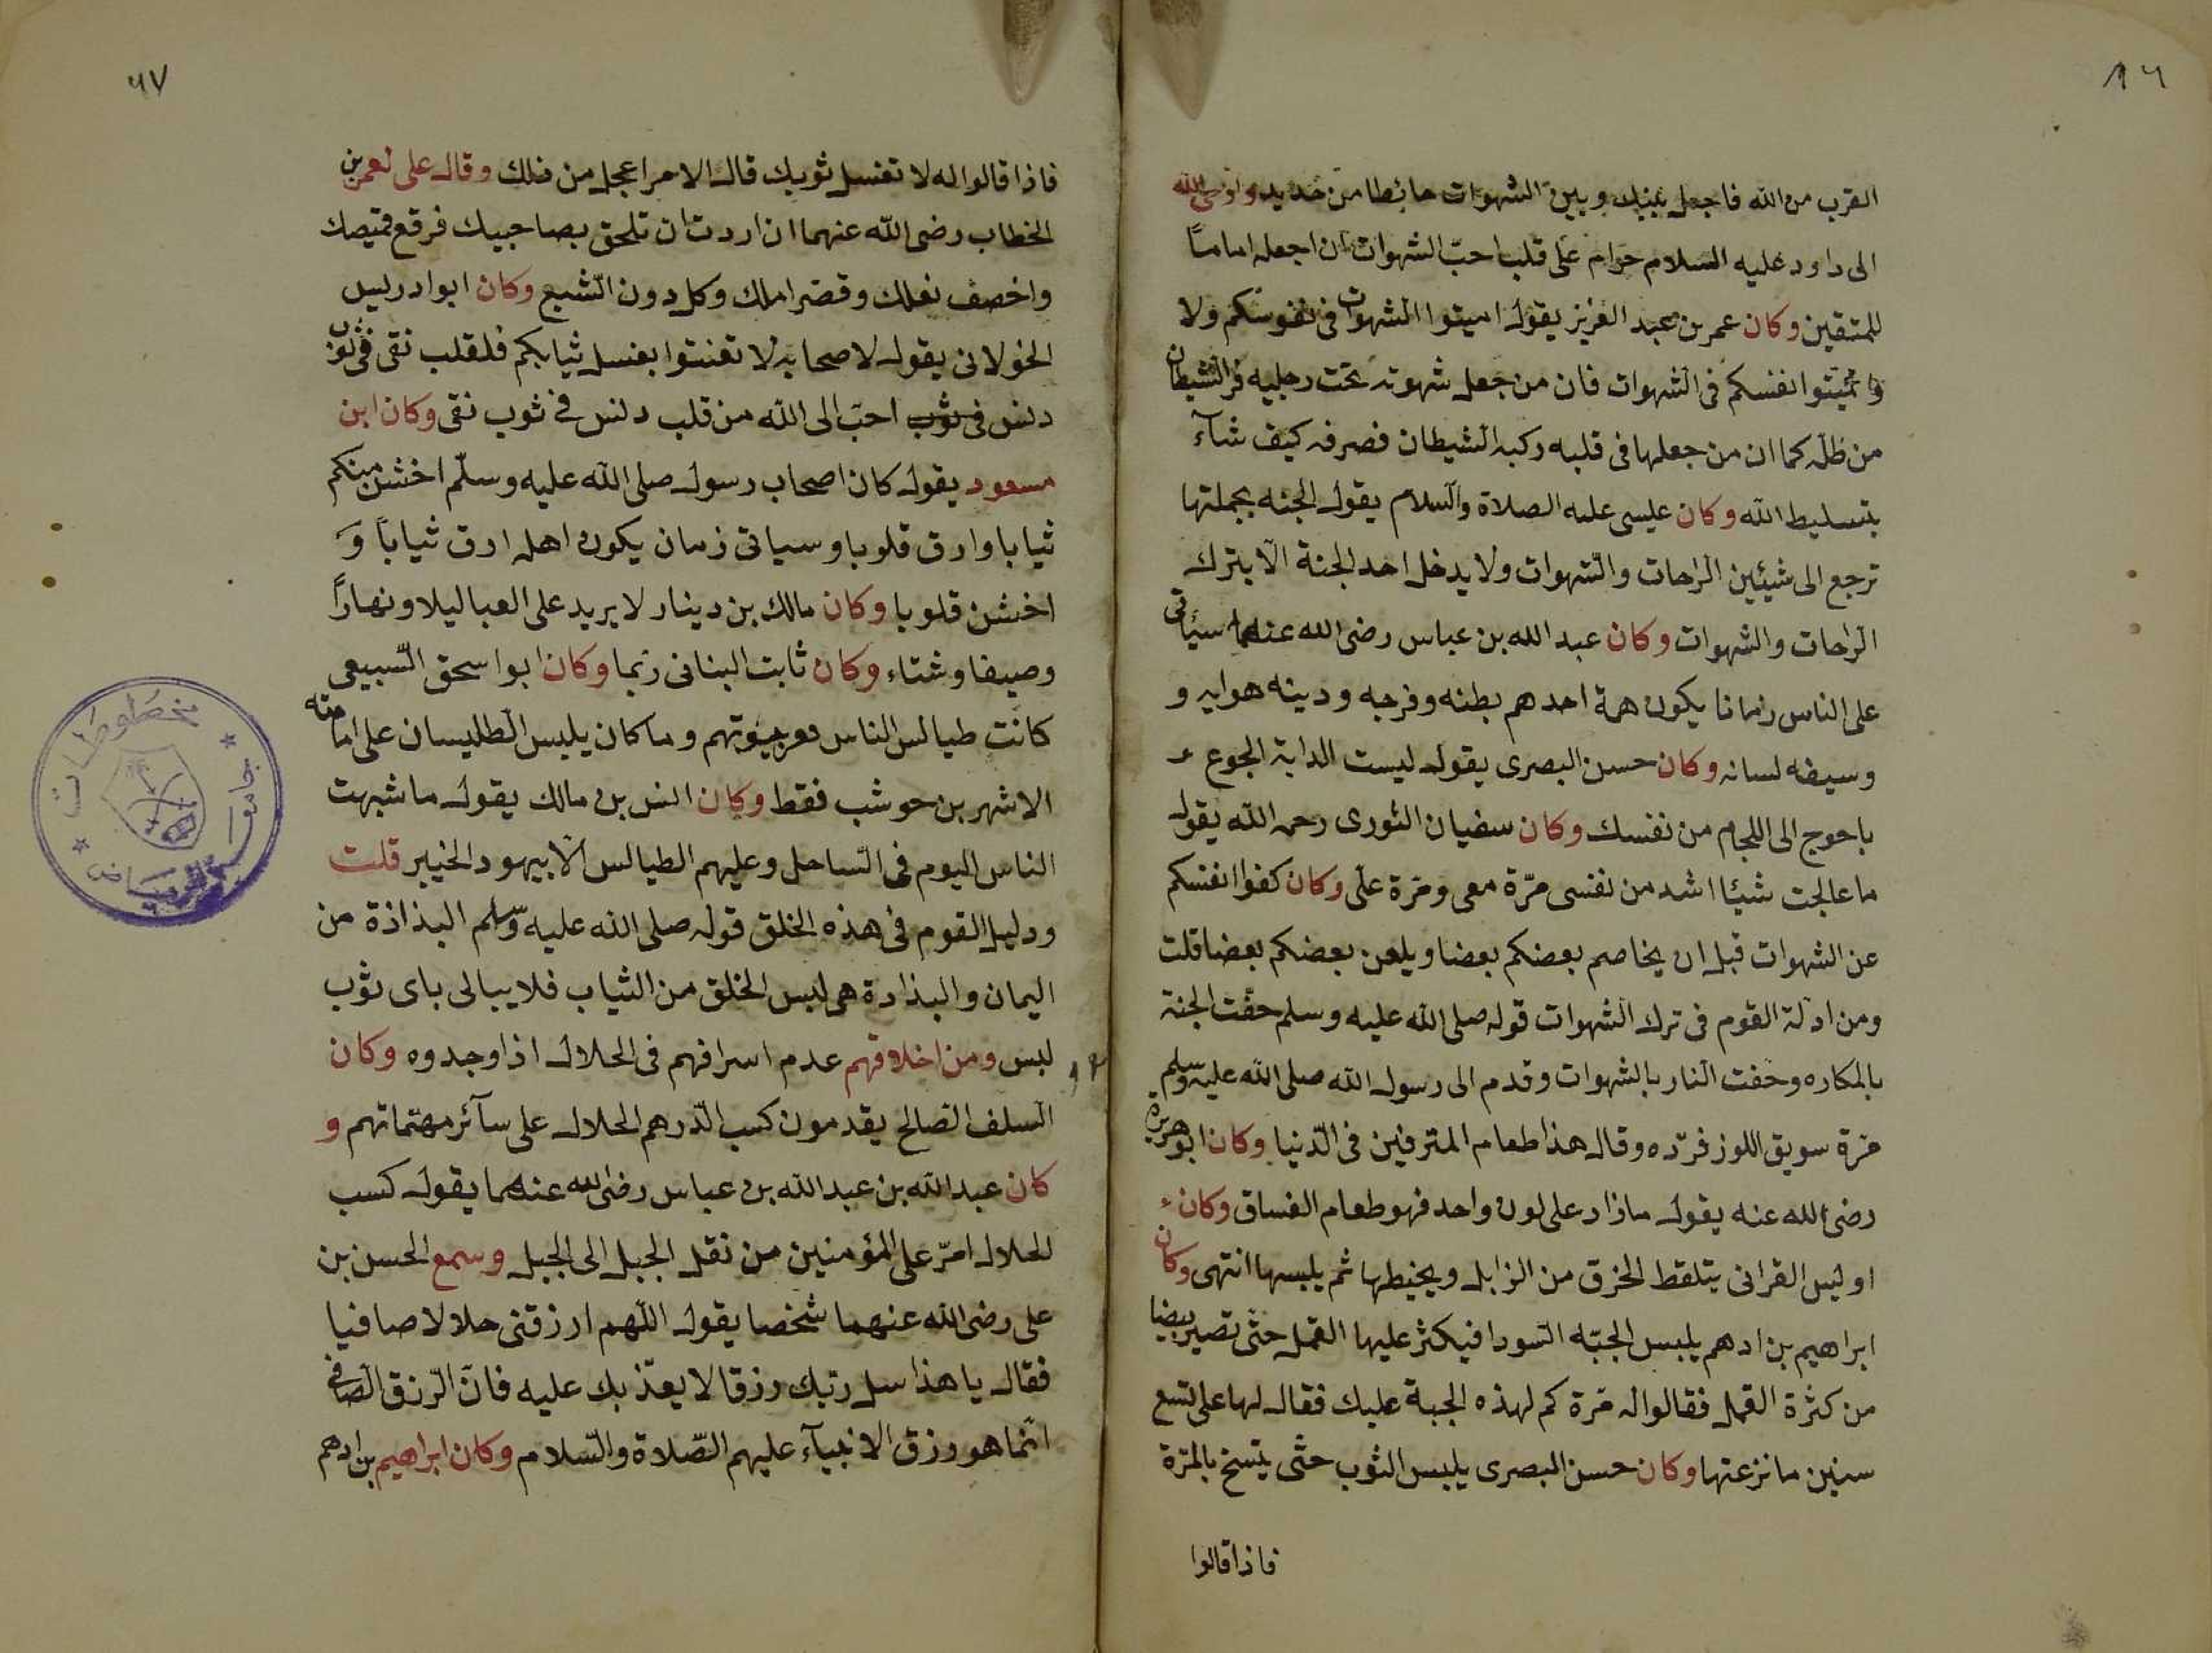 ٨٦
القرب من الله فاجعل بينك وبين الشهوات حائطا من حديد واوحى الله
الى داود عليه السلام حرام على قلب احبّ الشهوات ان اجعله اماماً
للمتقين وكان عمر بن عبد العزيز يقول اميتوا الشهوات فى نفوسكم ولا
تميتوا انفسكم فى الشهوات فان من جعل شهوته تحت رجليه فر الشيطان
من ظلّه كما ان من جعلها فى قلبه ركبه الشيطان فصرفه كيف شآء
بتسليط الله وكان عليسى عليه الصلاة والسلام يقول الجنه بجملتها
ترجع الى شيئين الراحات والشهوات ولا يدخل احد الجنة الا بترك
الراحات والشهوات وكان عبد الله بن عباس رضى الله عنهما سيأتى
على الناس زمانا يكون همة احدهم بطنه وفرجه ودينه هوايه و
وسيفه لسانه وكان حسن البصرى يقول ليست الدابة الجوع
باحوج الى اللجام من نفسك وكان سفيان الثورى رحمه الله يقول
ما عالجت شيئا اشد من نفسى مرّة معى ومرة علّى وكان كفوا انفسكم
عن الشهوات قبل ان يخاصم بعضكم بعضا ويلعن بعضكم بعضا قلت
ومن ادلة القوم فى ترك الشهوات قوله صلى الله عليه وسلم حفّت الجنة
بالمكاره وحفت النار بالشهوات وقدم الى رسول الله صلى الله عليه وسلم
مرة سويق اللوز فردّه وقال هذا طعام المترفين فى الدنيا وكان ابو هريرة
رضى الله عنه يقول ما زاد على لون واحد فهو طعام الفساق وكان
اوليس القرانى يتلقط الخرق من الزابل ويخيطها ثم يلبسها انتهى وكان
ابراهيم بن ادهم يلبس الجبّه السودا فيكثر عليها القمل حتى تصير بيضا
من كثرة القمل فقالوا له مرة كم لهذه الجبة عليك فقال لها على تسع
سنين ما نزعتها وكان حسن البصرى يلبس الثوب حتى يتسخ بالمرة
فاذا قالوا
٨٧
فاذا قالوا له لا تغسل ثوبك قال الامر اعجل من ذلك وقال على لعمر بن
الخطاب رضى الله عنهما ان اردت ان تلحق بصاحبيك فرقع قميصك
واخصف نعلك وقصر املك وكل دون الشبع وكان ابو ادريس
الخولانى يقول لاصحابه لا تعنتوا بغسل ثيابكم فلقلب نقى فى ثوب
دنس فى ثوب احبّ الى الله من قلب دنس فى ثوب نقى وكان ابن
مسعود يقول كان اصحاب رسول صلى الله عليه وسلّم اخشن منكم
ثيابا وارق قلوبا وسياتى زمان يكون اهله ارق ثياباً وَ
اخشن قلوبا وكان مالك بن دينار لا يريد على العبا ليلا ونهاراً
وصيفا وشتاء وكان ثابت البنانى ربما وكان ابو اسحق السبيعى
كانت طيالس الناس فعر بيوتهم وما كان يلبس الطليسان على امامته
الا شهر بن حوشب فقط وكان انس بن مالك يقول ما شبهت
الناس اليوم فى الساحل وعليهم الطيالس الا بيهود الخيبر قلت
ودليل القوم فى هذه الخلق قوله صلى الله عليه وسلم البذاذة من
اليمان والبذادة هى لبس الخلق من الثياب فلا يبالى باى ثوب
لبس ومن اخلاقهم عدم اسرافهم فى الحلال اذا وجدوه وكان
السلف الصالح يقدمون كسب الدّرهم الحلال على سآئر مهتماتهم و
كان عبد الله بن عبد الله بن عباس رضى الله عنهما يقول كسب
الحلال امرّ على المؤمنين من نقل الجبل الى الجبل وسمع الحسن بن
على رضى الله عنهما شخصا يقول اللهم ارزقنى حلالا صافيا
فقال يا هذا سل ربك رزقا لا يعذّبك عليه فانّ الرّزق الصافى
انّما هو رزق الانبيآء عليهم الصّلاة والسّلام وكان ابراهيم بن ادهم
مخطوطات
جامعة
الرياض